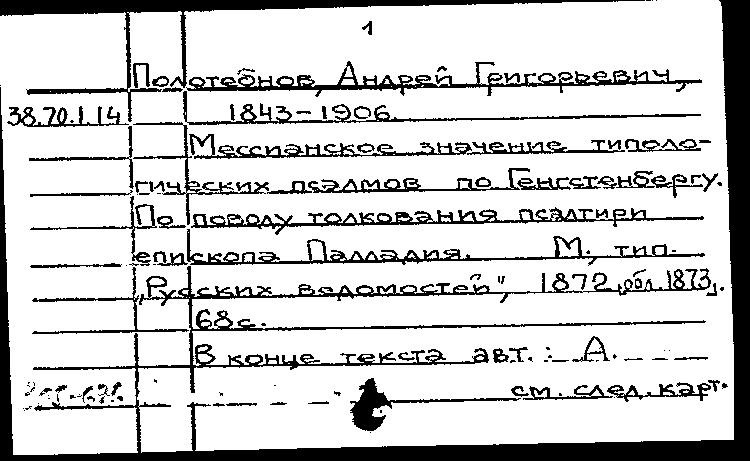 1
Полотебнов, Андрей Григорьевич,
38.70.1.14 1843-1906.
Мессианское значение типоло-
гических псалмов по Генгстенбергу.
По поводу толкования псалтири
епископа Палладия. М., тип.
„Русских ведомостей", 1872, обл. 1873,.
68 с.
В конце текста авт.: А.
см. след. карт.